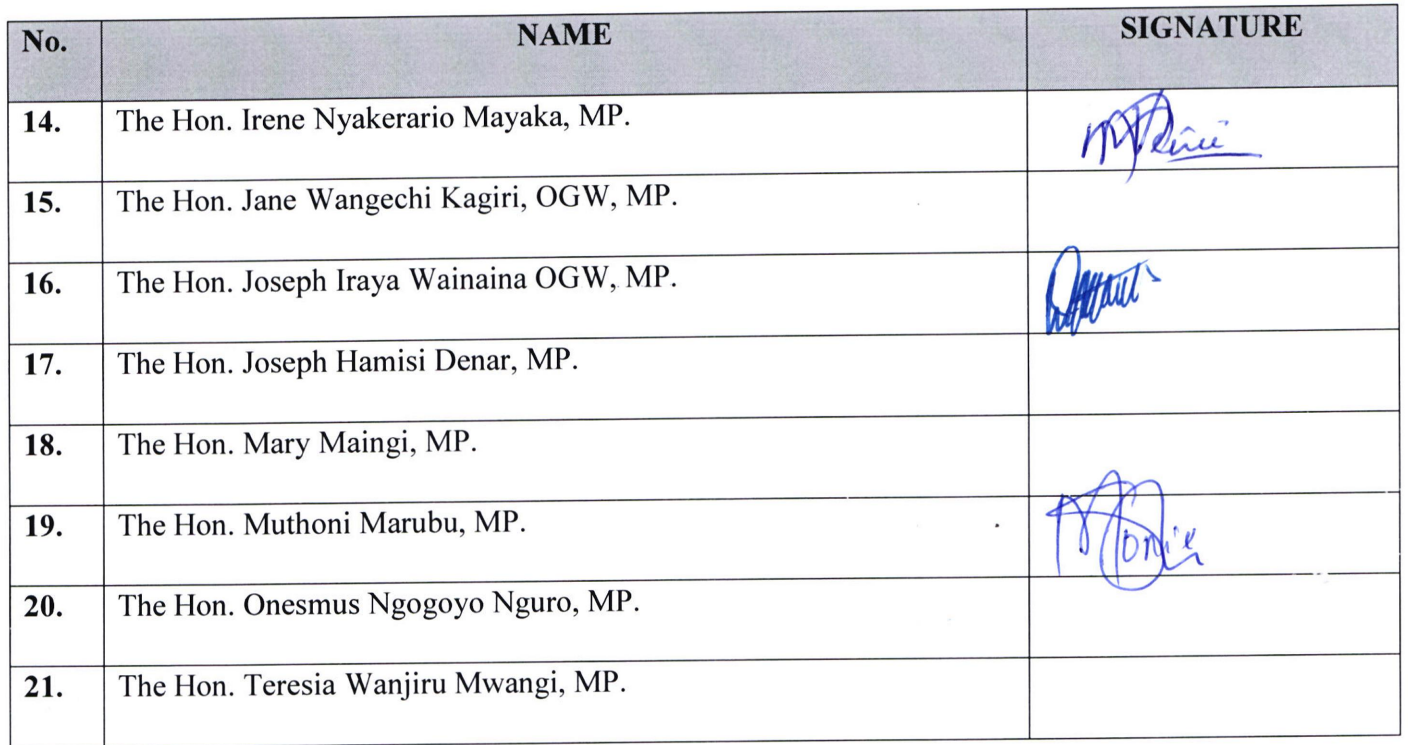 No. NAME SIGNATURE
14. The Hon. Irene Nyakerario Mayaka, MP.
15. The Hon. Jane Wangechi Kagiri, OGW, MP.
16. The Hon. Joseph Iraya Wainaina OGW, MP.
17. The Hon. Joseph Hamisi Denar, MP.
18. The Hon. Mary Maingi, MP.
19. The Hon. Muthoni Marubu, MP.
20. The Hon. Onesmus Ngogoyo Nguro, MP.
21. The Hon. Teresia Wanjiru Mwangi, MP.